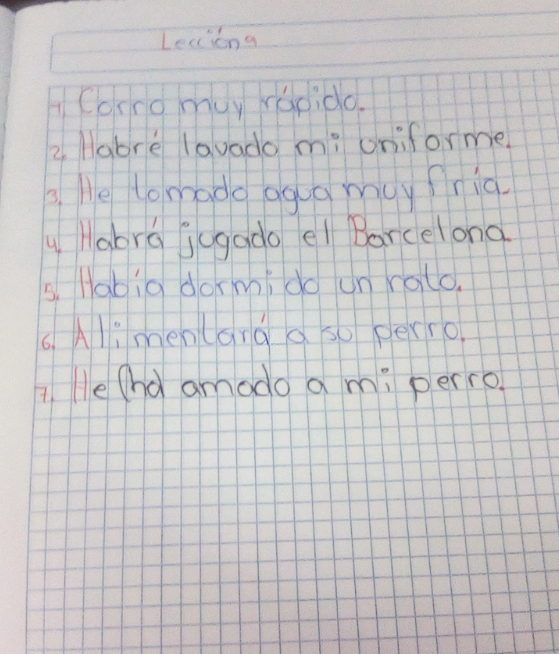 Lección 9
1. Corro muy rápido.
2. Habré lavado mi uniforme.
3. He tomado agua muy fría.
4. Habrá jugado el Barcelona.
5. Había dormido un rato.
6. Alimentará a su perro.
7. He (ha amado a mi perro.